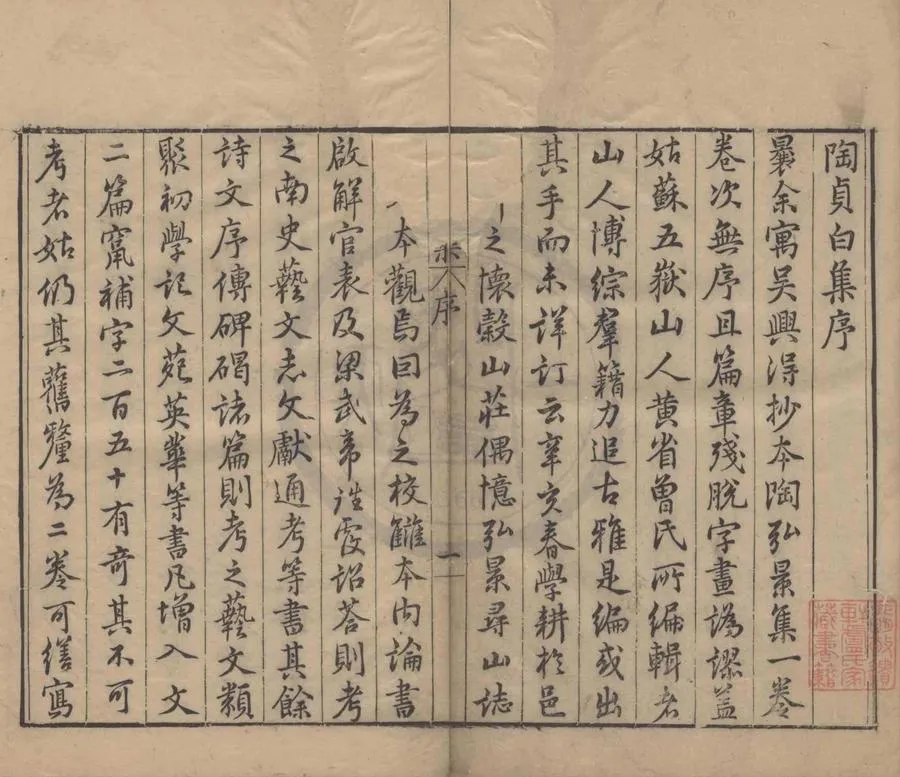 陶貞白集序
曩余寓吳興得抄本陶弘景集一卷
卷次無序且篇章殘脫字畫譌謬蓋
姑蘇五嶽山人黃省曾氏所編輯者
山人博綜羣籍力追古雅是編或出
其手而未詳訂云辛亥春學耕於邑
之懷穀山莊偶憶弘景尋山誌
序 一
本觀焉因為之校讎本內論書
啟解官表及梁武帝詔荅則考
之南史藝文志文獻通考等書其餘
詩文序傳碑碣諸篇則考之藝文類
聚初學記文苑英華等書凡增入文
二篇竄補字二百五十有奇其不可
考者姑仍其舊釐為二卷可繕寫
藏書籍